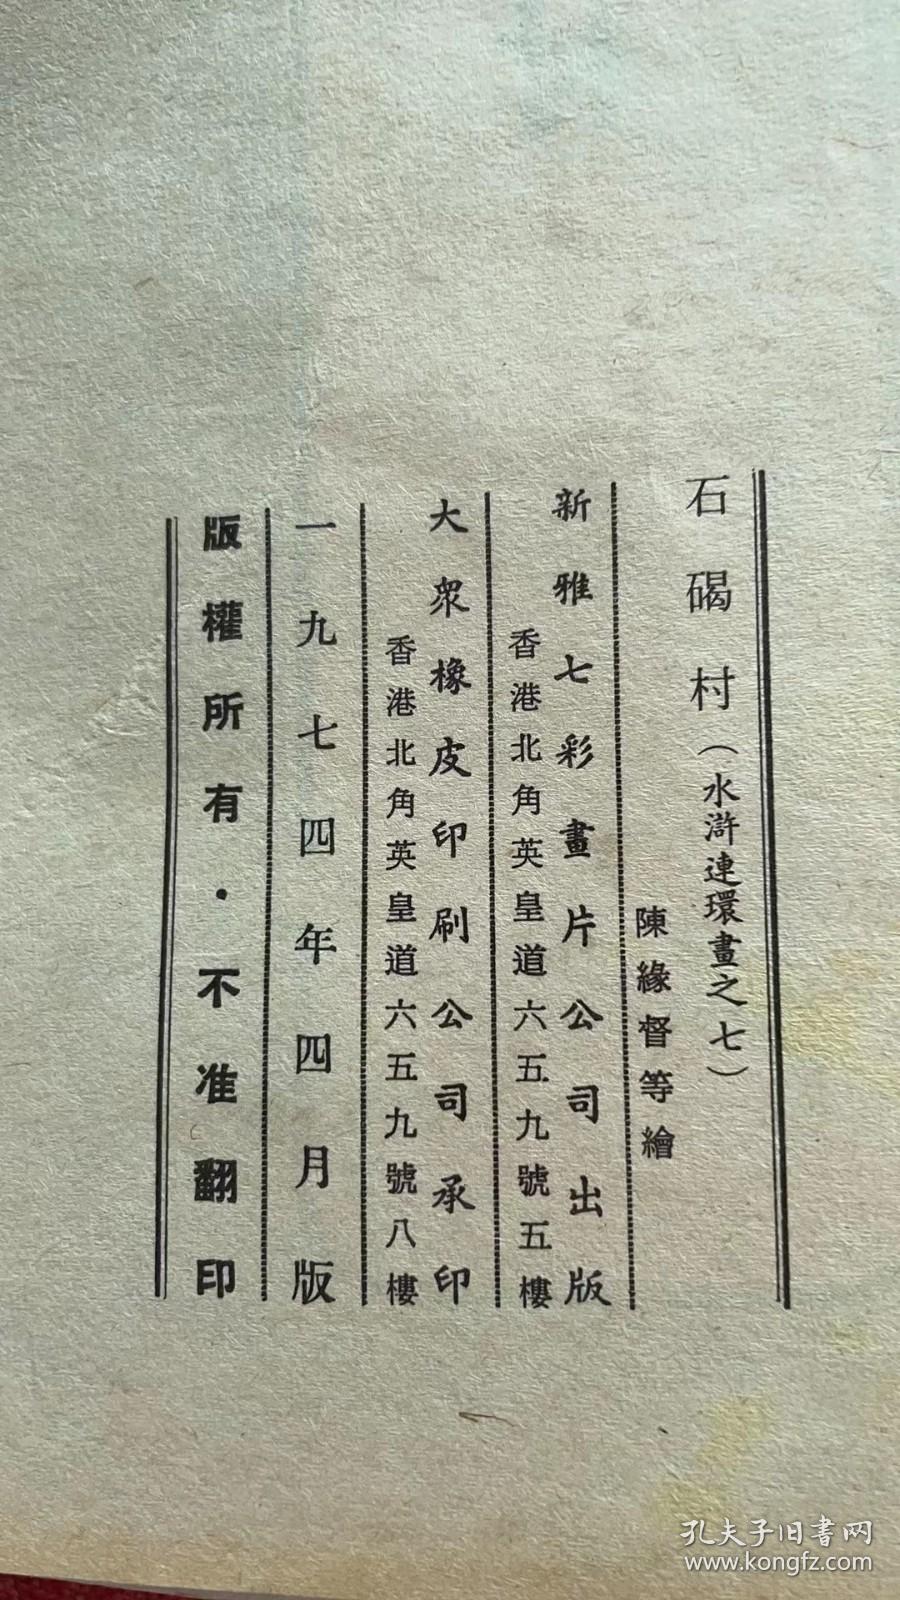 石碣村（水滸連環畫之七）
陳緣督等繪
新雅七彩畫片公司出版
香港北角英皇道六五九號五樓
大眾橡皮印刷公司承印
香港北角英皇道六五九號八樓
一九七四年四月版
版權所有·不准翻印
孔夫子旧書网
www.kongfz.com